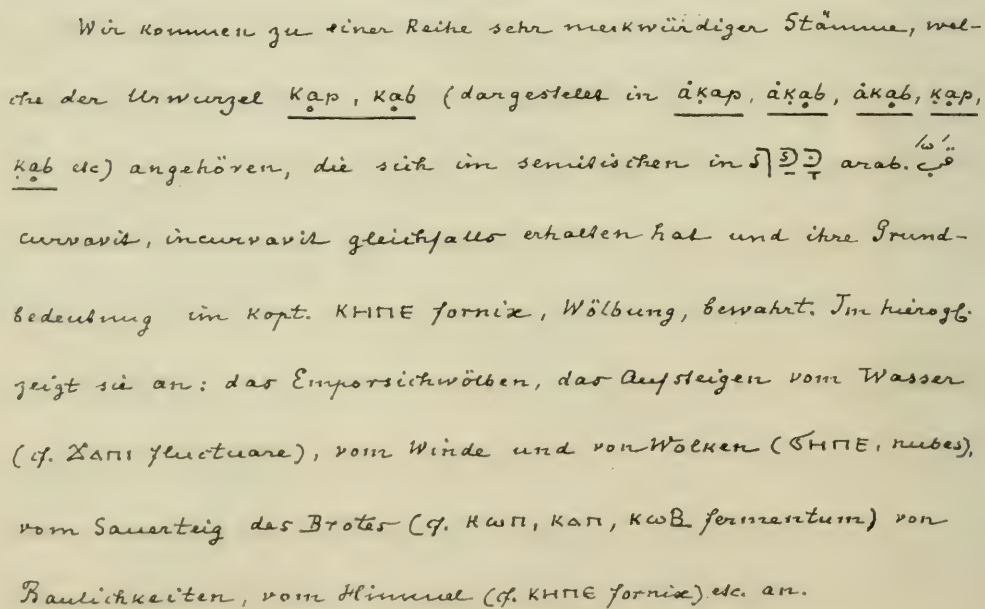 Wir kommen zu einer Reihe sehr merkwürdiger Stämme, wel-
che der Urwurzel ḳap, ḳab (dargestellt in ȧḳap, ȧḳạb, ȧkạb, ḳạp,
ḳạb etc) angehören, die sich im semitischen in arab. قب
curvavit, incurvavit gleichfalls erhalten hat und ihre Grund-
bedeutung im Kopt. ⲕⲏⲡⲉ fornix, Wölbung, bewahrt. Im hierogl.
zeigt sie an: das Emporsichwölben, das Aufsteigen vom Wasser
(cf. ϫⲁⲡⲓ fluctuare), vom Winde und von Wolken (ϭⲏⲡⲉ, nubes),
vom Sauerteig des Brotes (cf. ⲕⲱⲡ, ⲕⲁⲡ, ⲕⲱⲃ fermentum) von
Baulichkeiten, vom Himmel (cf. ⲕⲏⲡⲉ fornix) etc. an.